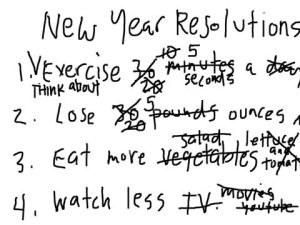 New Year Resolutions
10 5
1. Exercise 30 minutes a
Think about 20 seconds
5
2. Lose 30 pounds ounces
20
salad lettuce
3. Eat more vegetables and
movies
4. Watch less TV. youtube